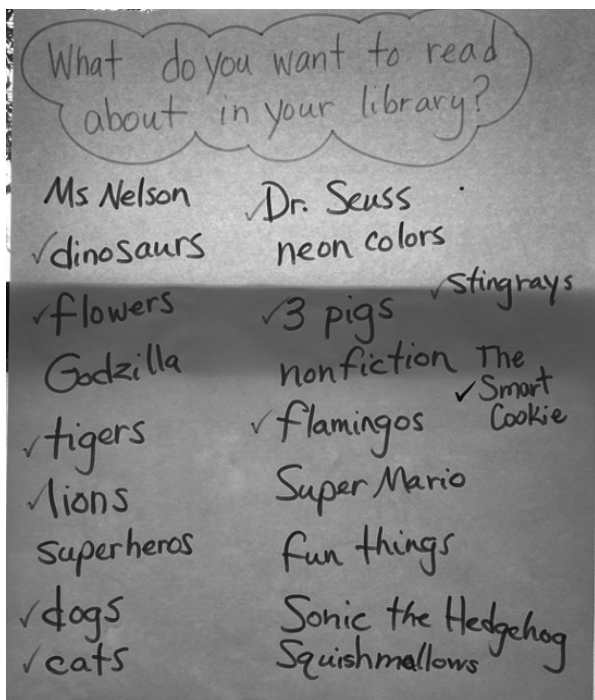 What do you want to read
about in your library?
Ms Nelson
✓dinosaurs
✓flowers
Godzilla
✓tigers
✓lions
superheros
✓dogs
✓cats
✓Dr. Seuss
neon colors
✓3 pigs
nonfiction
✓flamingos
Super Mario
fun things
Sonic the Hedgehog
Squishmallows
✓stingrays
The
✓Smart
Cookie